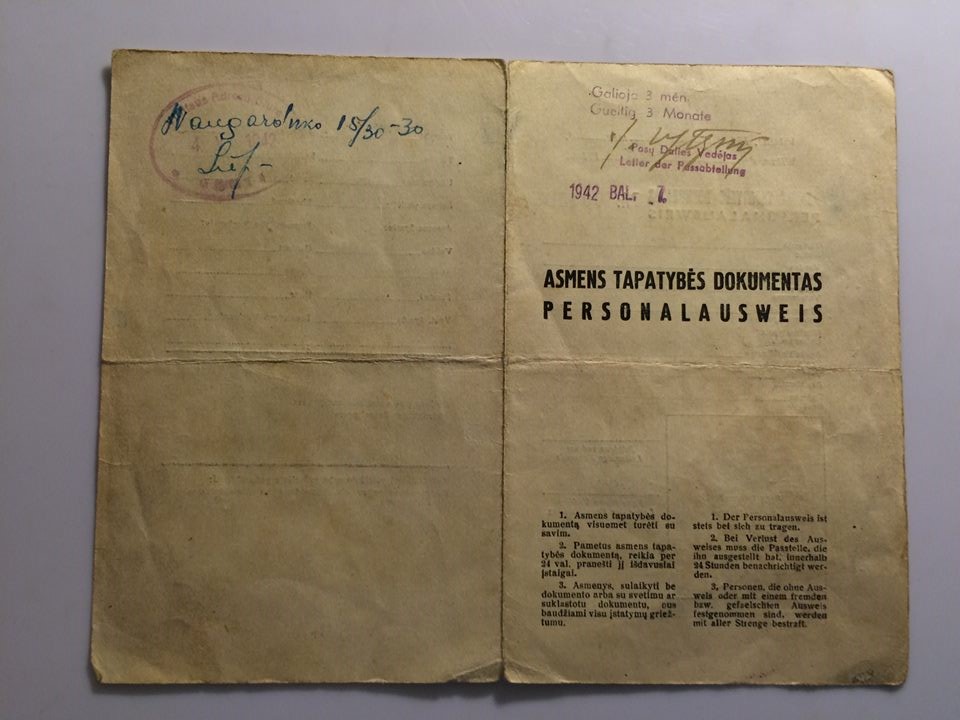 Naugarduko 15/30-30
Galioja 3 mėn.
Gueltig 3 Monate
Pasų Dalies Vedėjas
Leiter der Passabteilung
1942 BAL. 7.
ASMENS TAPATYBĖS DOKUMENTAS
PERSONALAUSWEIS
1. Asmens tapatybės do-
kumentą visuomet turėti su
savim.
2. Pametus asmens tapa-
tybės dokumentą, reikia per
24 val. pranešti jį išdavusiai
įstaigai.
3. Asmenys, sulaikyti be
dokumento arba su svetimu ar
suklastotu dokumentu, bus
baudžiami visu įstatymų griež-
tumu.
1. Der Personalausweis ist
stets bei sich zu tragen.
2. Bei Verlust des Aus-
weises muss die Passtelle, die
ihn ausgestellt hat, innerhalb
24 Stunden benachrichtigt wer-
den.
3. Personen, die ohne Aus-
weis oder mit einem fremden
bzw. gefaelschten Ausweis
festgenommen sind, werden
mit aller Strenge bestraft.